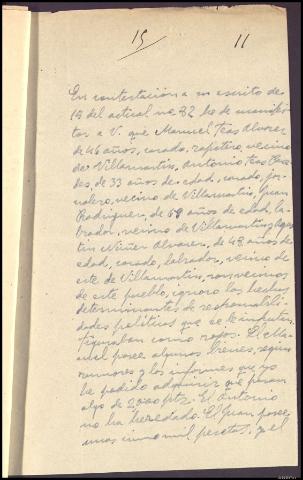 15
11
En contestación a su escrito de
19 del actual nº 32 he de manifes
tar a V. que Manuel Alvarez
de 46 años, casado, vecino
de Villamartin, Antonio
des, de 33 años de edad, casado, jor
nalero, vecino de Villamartin, Juan
Rodriguez, de 69 años de edad, la
brador, vecino de Villamartin y Agus
tin Nuñez Alvarez, de 48 años de
edad, casado, labrador, vecino de
este de Villamartin, son vecinos
de este pueblo, ignoro los hechos
determinantes de responsabili
dades políticas que se le imputan.
Figuraban como rojos. El Ma
nuel posee algunos bienes, segun
rumores y los informes que yo
he podido adquirir que pasan
algo de 2,000 ptz. El Antonio
no ha heredado. El Juan posee
unas cinco mil pesetas, y el